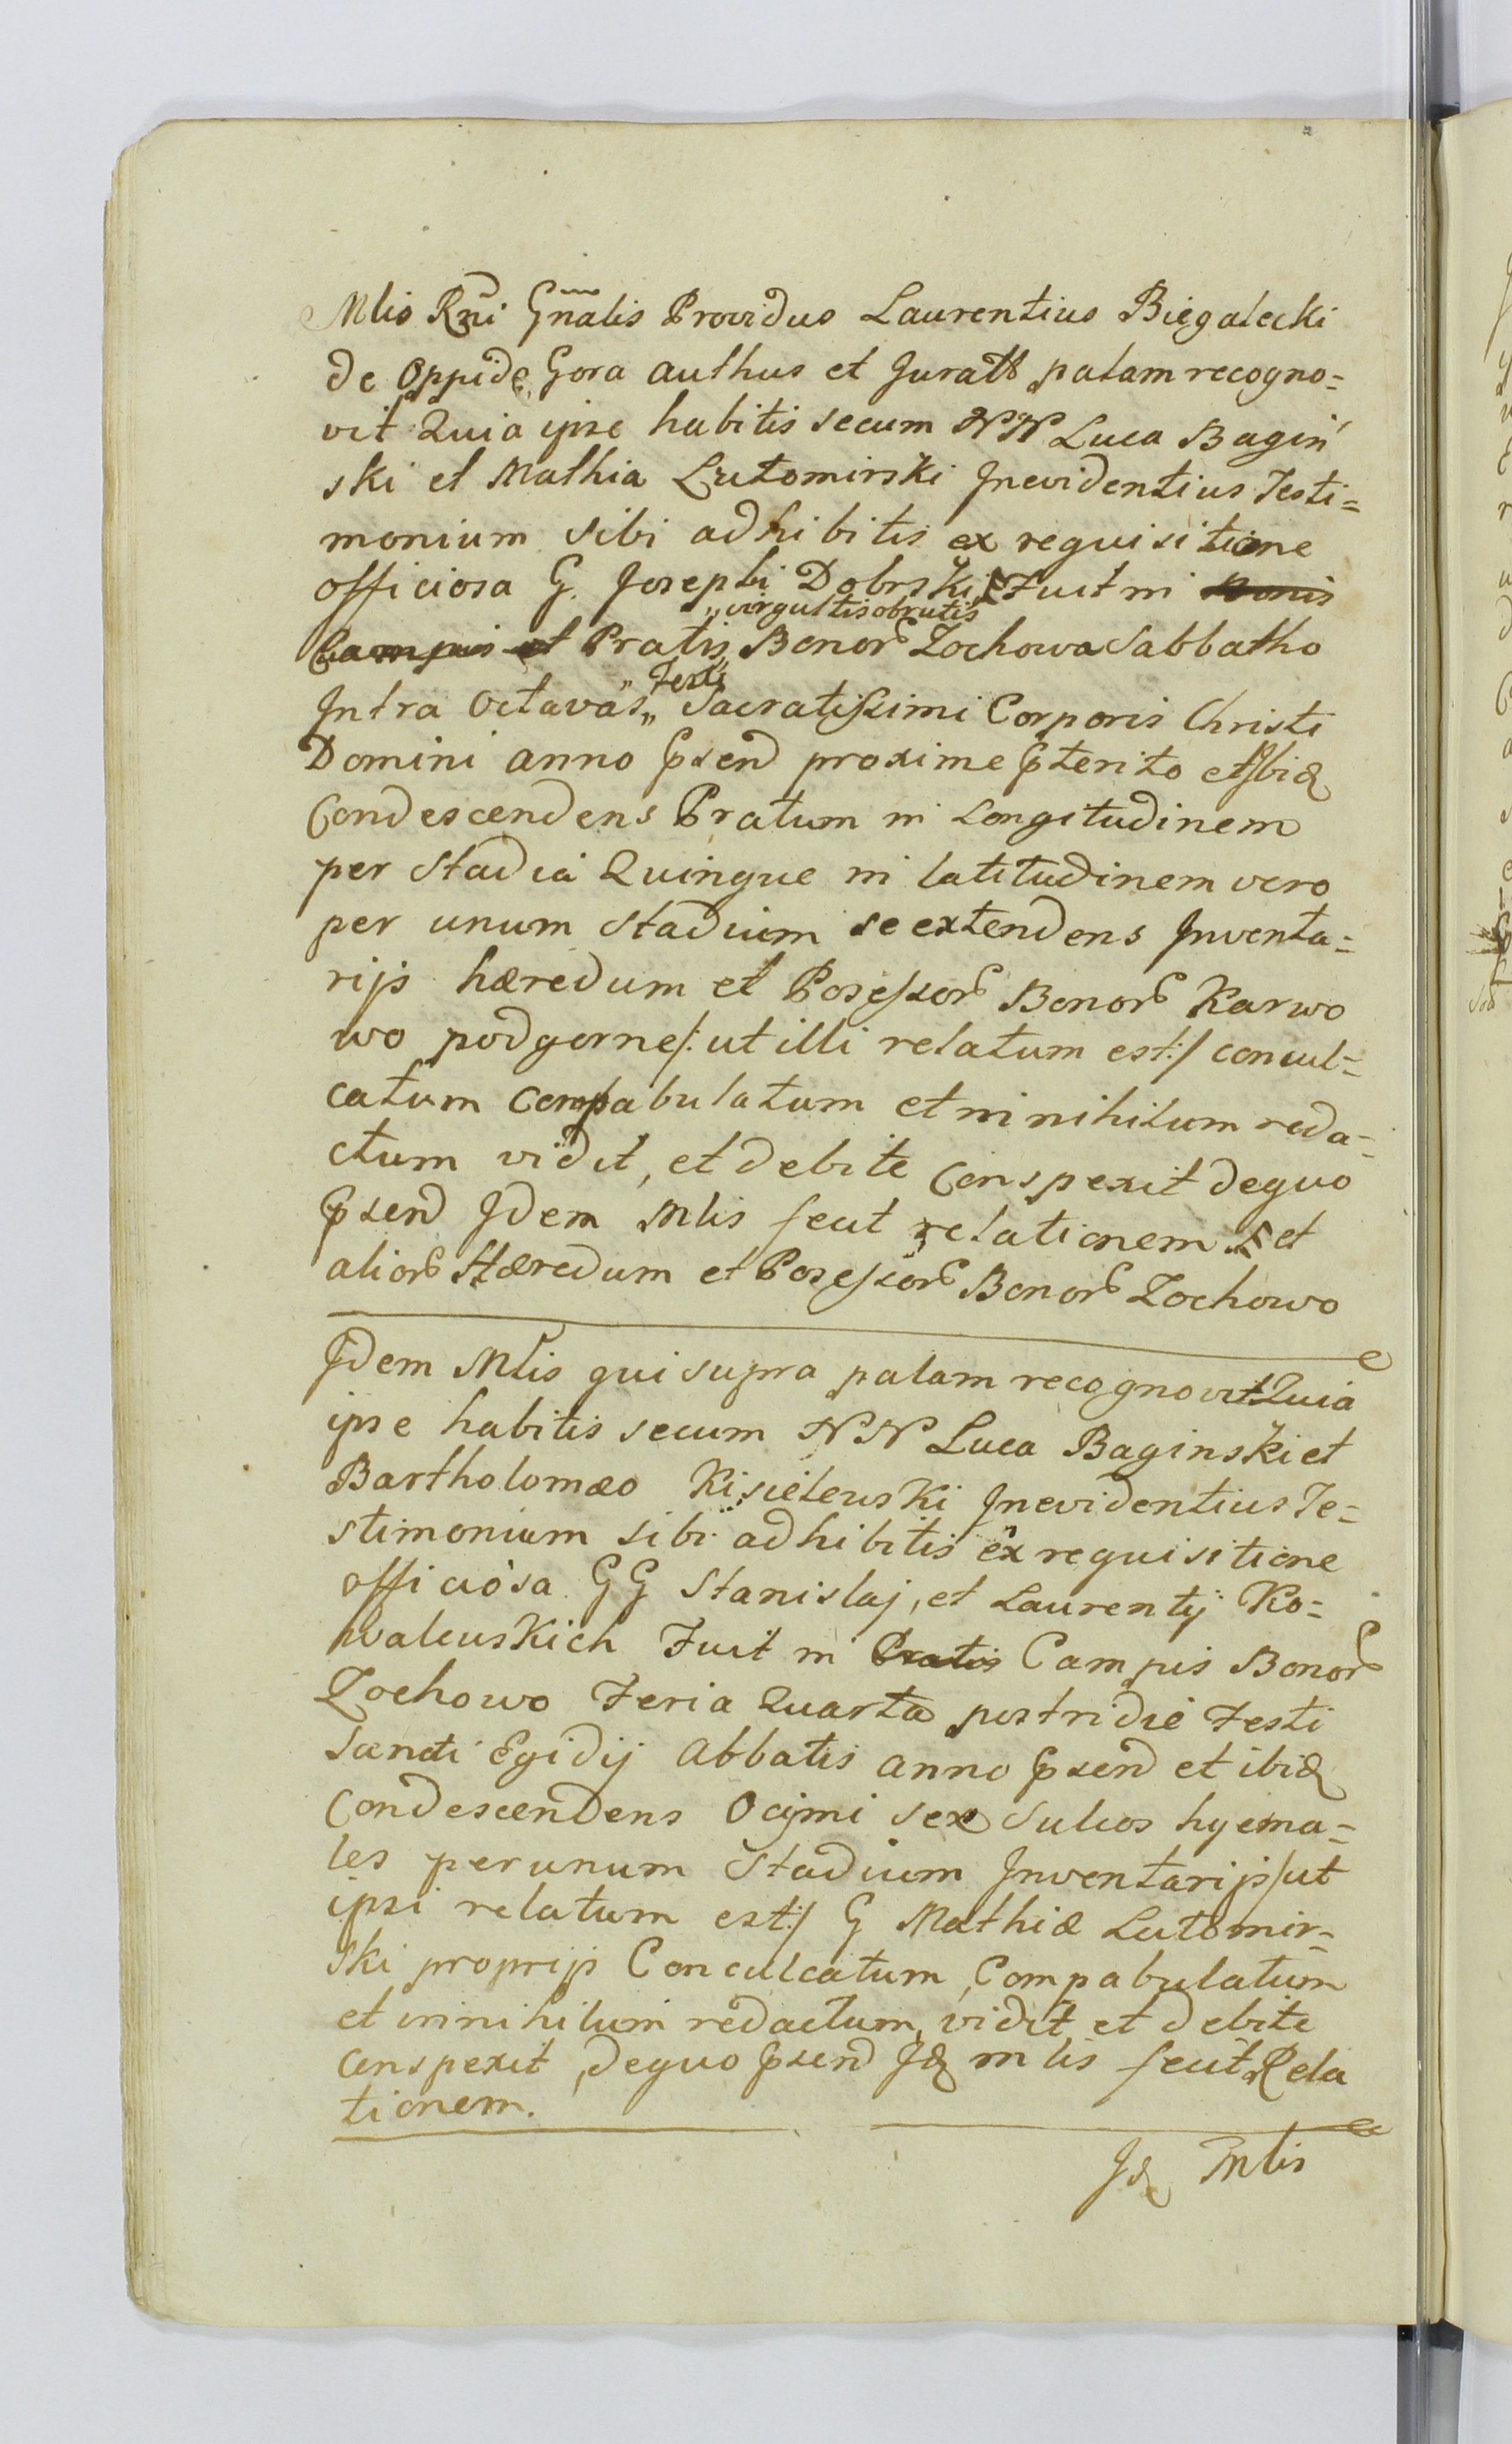 Mlis Rñi Gñalis Providus Laurentius Biegalecki
de Oppido Gora authus et Juratt palam recogno=
vit Quia ipse habitis secum NN Luca Bagiń
ski et Mathia Lutomirski Inevidentius Testi=
monium sibi adhibitis ex requisitione
officiosa G. Josephi Dobrski Fuit in Bonis
„virgultis obrutis
Campis et Pratis„ Bonor Zochowa Sabbatho
„Festi
Intra Octavas„ Sacratissimi Corporis Christi
Domini anno Psend proxime Pterito et Ibid
Condescendens Pratum in Longitudinem
per Stadia Quinque in latitudinem vero
per unum Stadium se extendens Inventa=
rijs hæredum et Posessor Bonor Karwo
wo podgorne /: ut illi relatum est :/ concul=
catum compabulatum et in nihilum reda=
ctum vidit, et debite Conspexit de quo
Psend Idem Mlis fecit relationem et
alior Hæredum et Posessor Bonor Zochowo
Idem Mlis qui supra palam recognovit Quia
ipse habitis secum NN Luca Baginski et
Bartholomæo Kisielewski Inevidentius Te=
stimonium sibi adhibitis ex requisitione
officiosa GG Stanislaj, et Laurentij Ko=
waleuskich Fuit in Pratis Campis Bonor
Zochowo Feria Quarta postridie Festi
Sancti Egidij Abbatis anno Psend et ibid
Condescendens Ocijmi sex Sulcos hyema=
les per unum Stadium Inventarijs /ut
ipsi relatum est :/ G Mathiæ Lutomir=
ski proprijs Conculcatum, Compabulatum
et in nihilum redactum, vidit et debite
conspexit, de quo Psend Id mlis fecit Rela
tionem.
Id Mlis